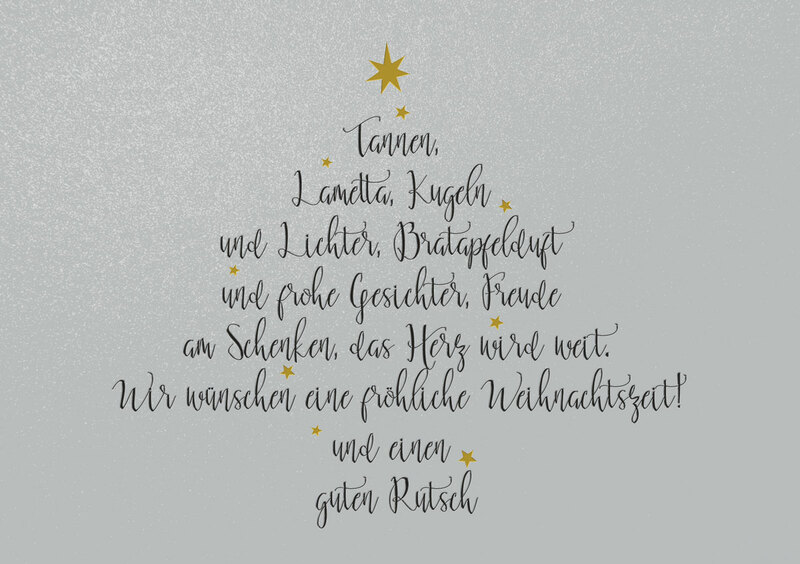 Tannen,
Lametta, Kugeln
und Lichter, Bratapfelduft
und frohe Gesichter, Freude
am Schenken, das Herz wird weit.
Wir wünschen eine fröhliche Weihnachtszeit!
und einen
guten Rutsch